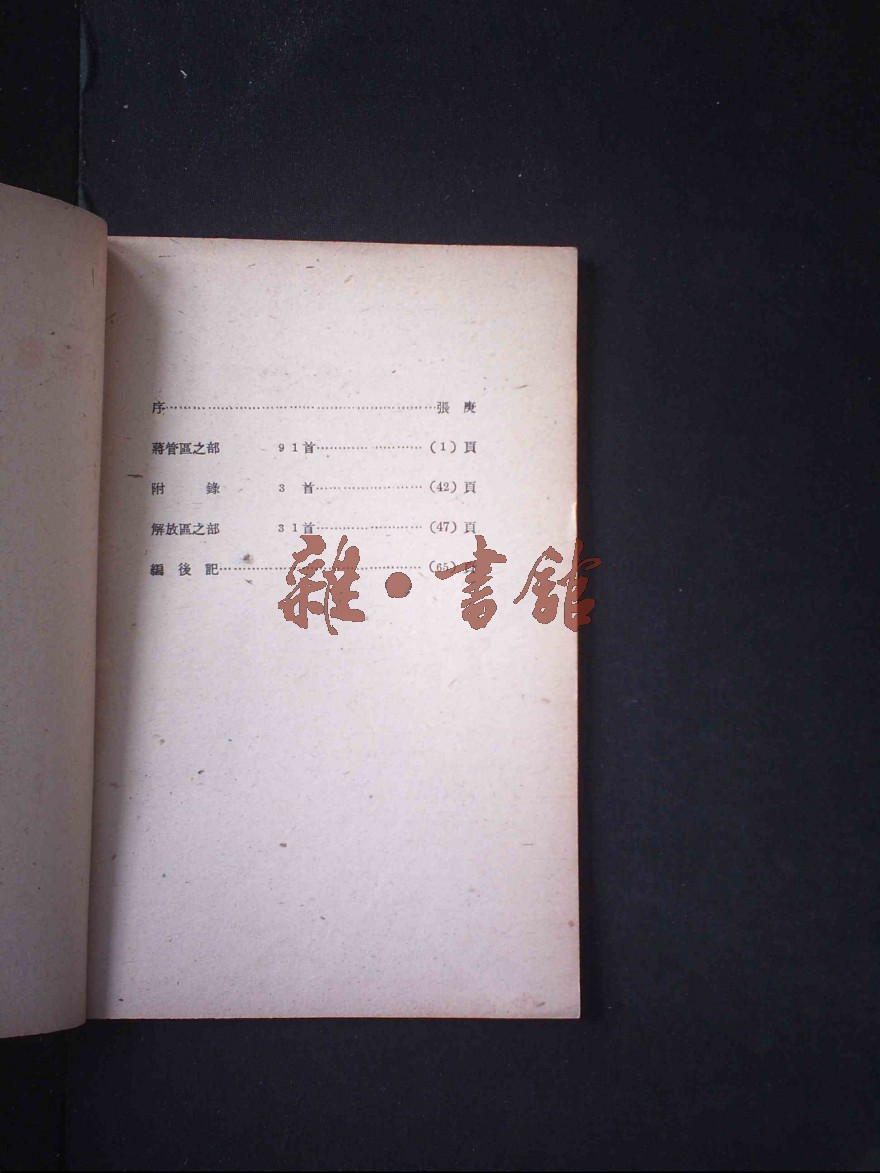 序……………………………………………張 庚
蔣管區之部 91首…………………(1)頁
附 錄 3 首…………………(42)頁
解放區之部 31首…………………(47)頁
編 後 記…………………………………(65)頁
雜·書館